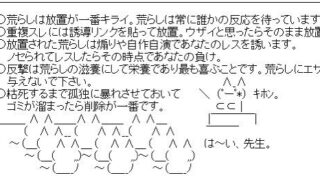 ○荒らしは放置が一番キライ。荒らしは常に誰かの反応を待っています
○重複スレには誘導リンクを貼って放置。ウザイと思ったらそのまま放置
○放置された荒らしは煽りや自作自演であなたのレスを誘います。
ノセられてレスしたらその時点であなたの負け。
○反撃は荒らしの滋養にして栄養であり最も喜ぶことです。荒らしにエサ
与えないで下さい。
○枯死するまで孤独に暴れさせておいて
ゴミが溜まったら削除が一番です。
キホン。
は～い、先生。